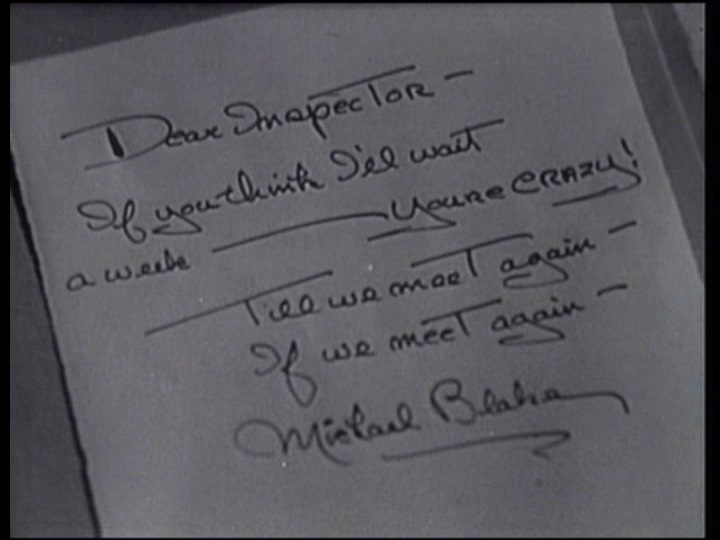 Dear Inspector —
If you think I'll wait
a week —— You're CRAZY!
Till we meet again —
If we meet again —
Michael Blake